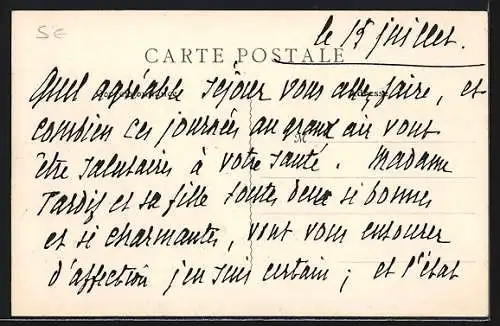 SE
le 15 juillet.
CARTE POSTALE
Quel agréable séjour vous allez faire, et
combien ces journées au grand air vont
être salutaires à votre santé. Madame
Tardif et sa fille toutes deux si bonnes
et si charmantes, vont vous entourer
d'affection j'en suis certain ; et l'état